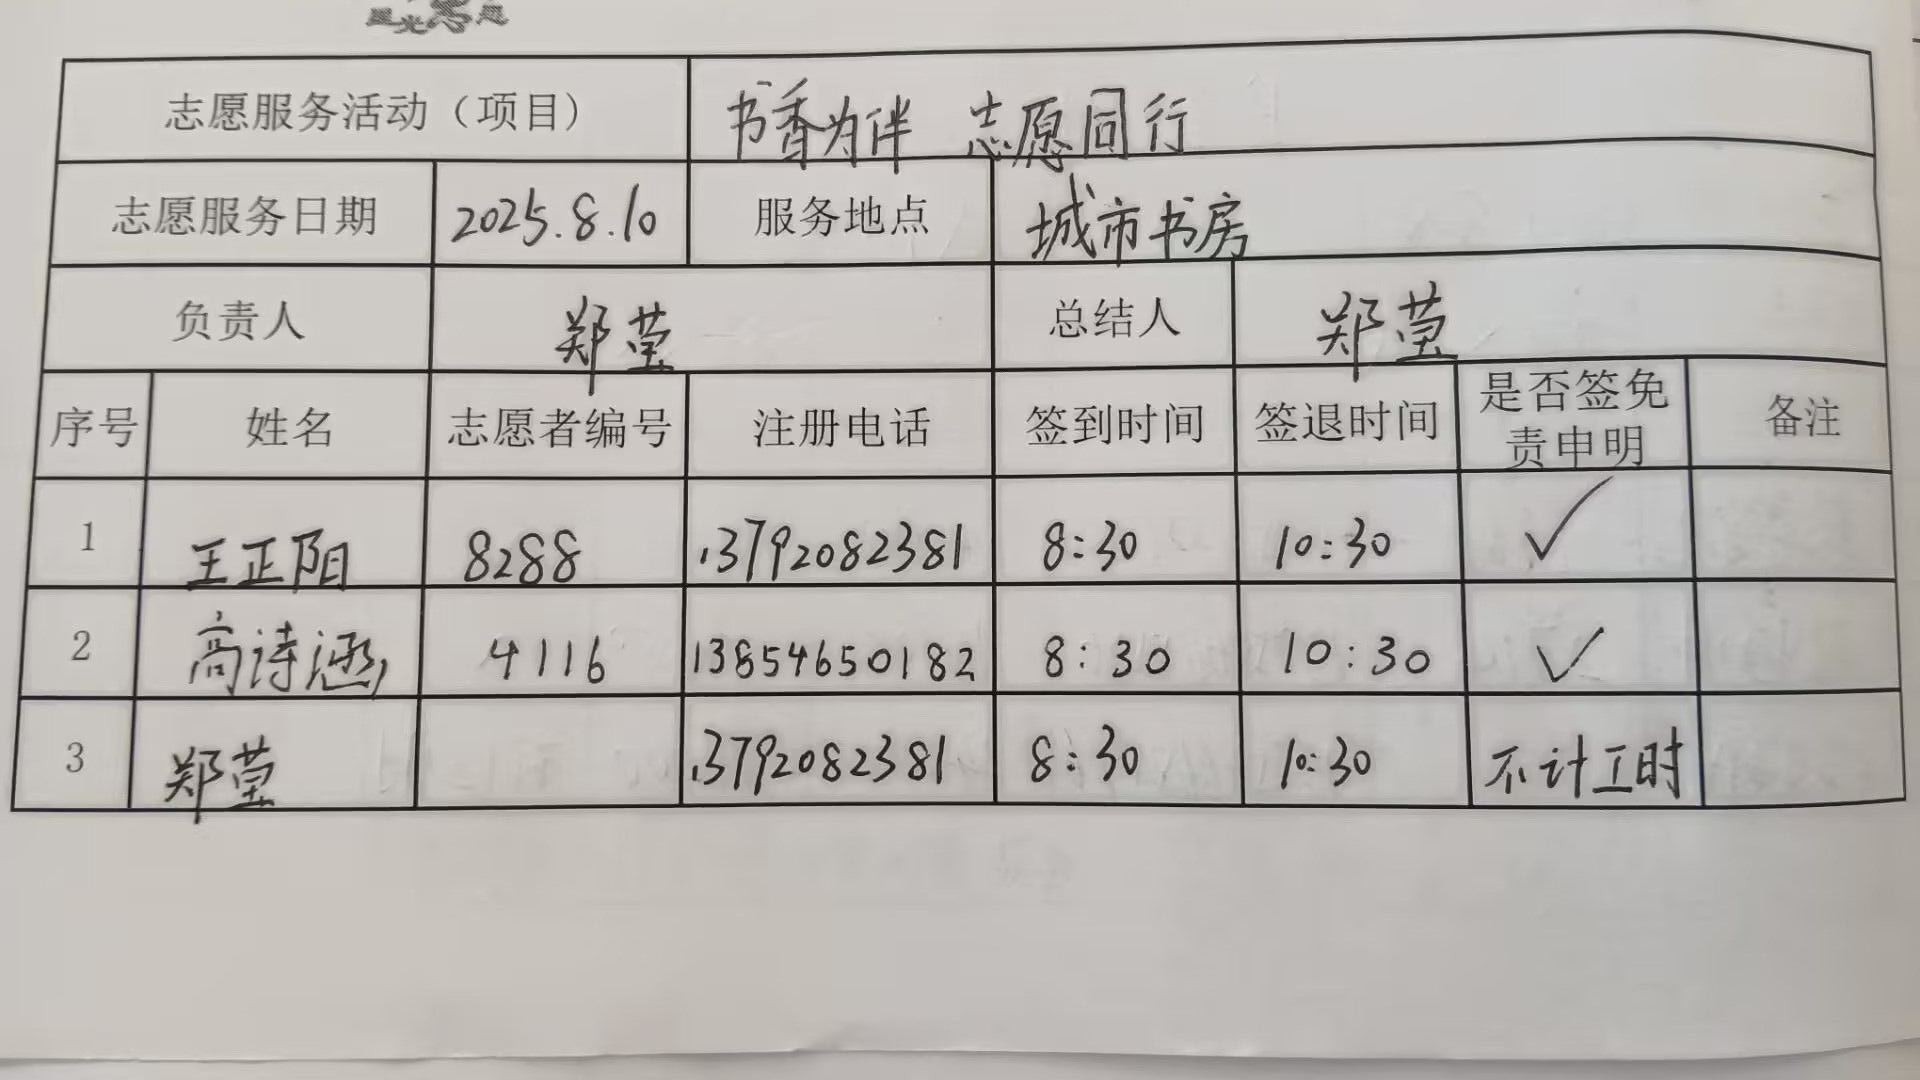 志愿服务活动（项目） 书香为伴 志愿同行
志愿服务日期 2025.8.10 服务地点 城市书房
负责人 郑莹 总结人 郑莹
序号 姓名 志愿者编号 注册电话 签到时间 签退时间 是否签免责申明 备注
1 王正阳 8288 13792082381 8:30 10:30 ✓
2 高诗涵 4116 13854650182 8:30 10:30 ✓
3 郑莹 13792082381 8:30 10:30 不计工时